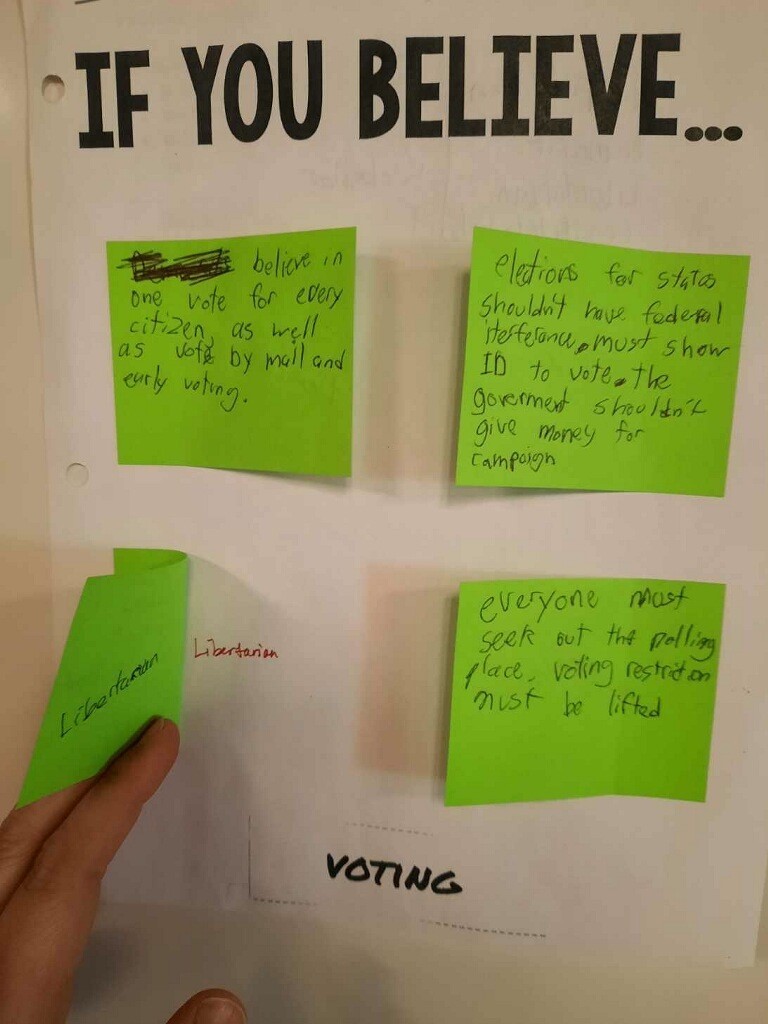 IF YOU BELIEVE...
believe in
one vote for every
citizen, as well
as vote by mail and
early voting.
elections for states
shouldn't have federal
iterferance, must show
ID to vote, the
goverment shouldn't
give money for
campaign
Libertarian
Libertarian
everyone must
seek out the polling
place, voting restriction
must be lifted
VOTING